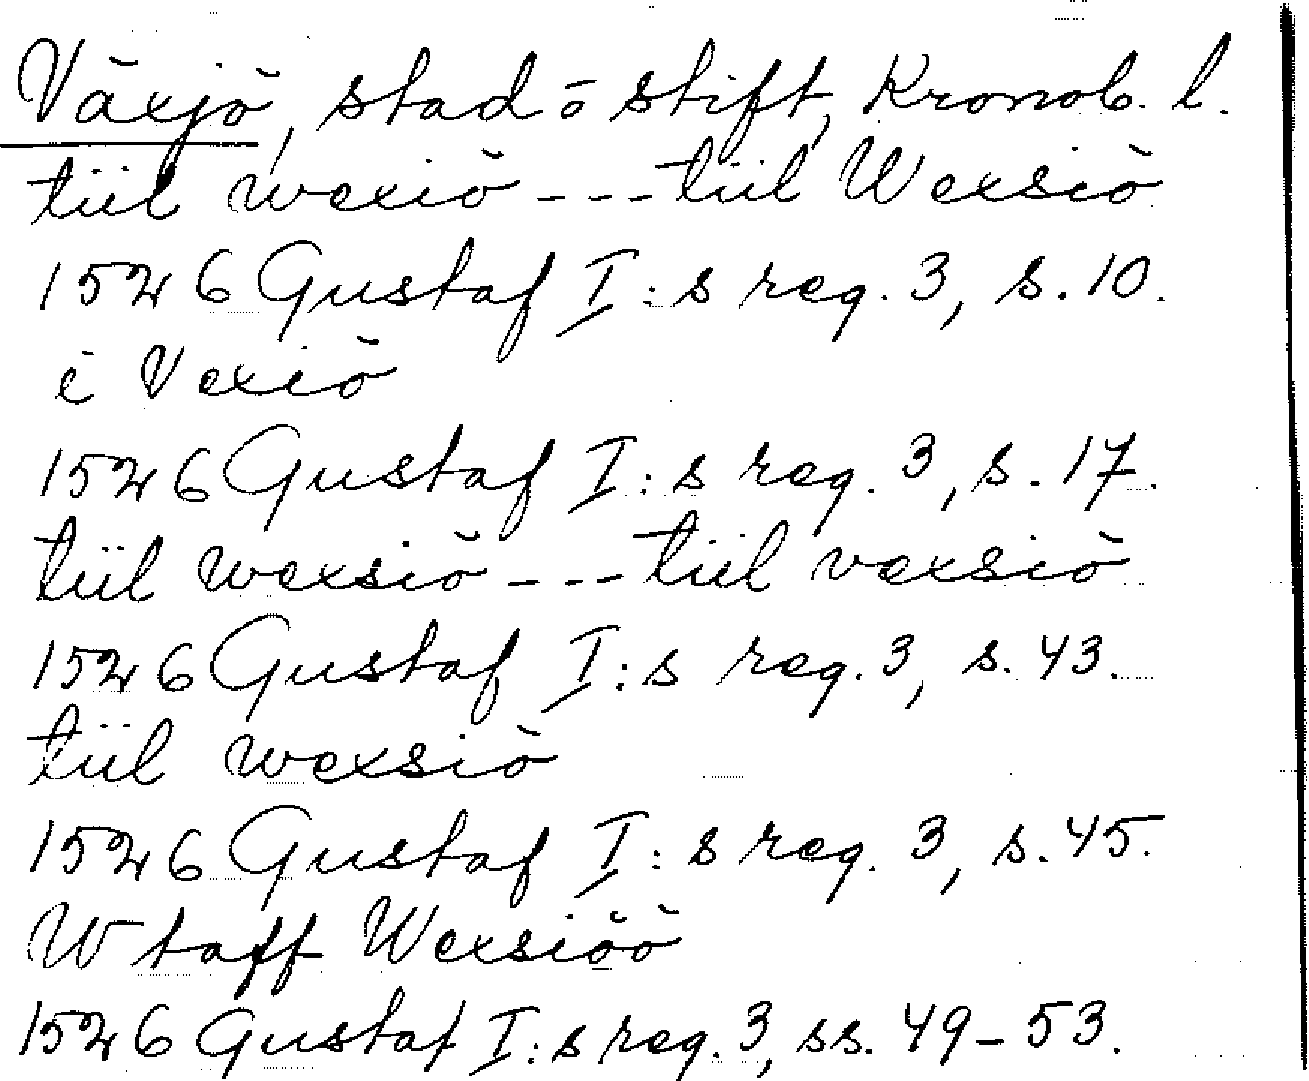 Växjö, stad o stift, Kronob. l.
tiil wexiö --- tiil Wexsiö
1526 Gustaf I:s reg. 3, s. 10.
i Vexiö
1526 Gustaf I:s reg. 3, s. 17.
tiil wexsiö --- tiil vexsiö
1526 Gustaf I:s reg. 3, s. 43.
tiil wexsiö
1526 Gustaf I:s reg. 3, s. 45.
W taff Wexsiöö
1526 Gustaf I:s reg. 3, ss. 49-53.